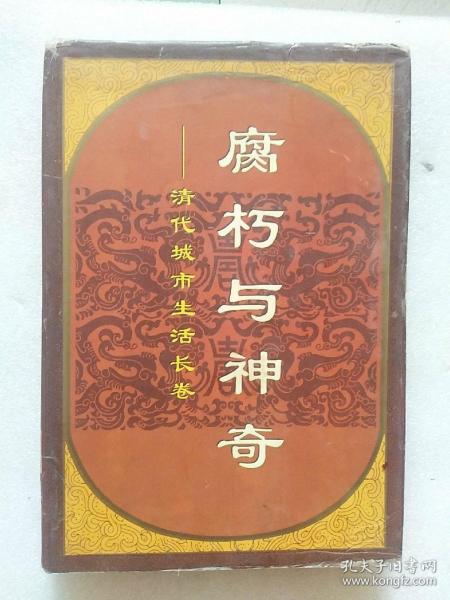 腐朽与神奇
——清代城市生活长卷
孔夫子旧书网
www.kongfz.com